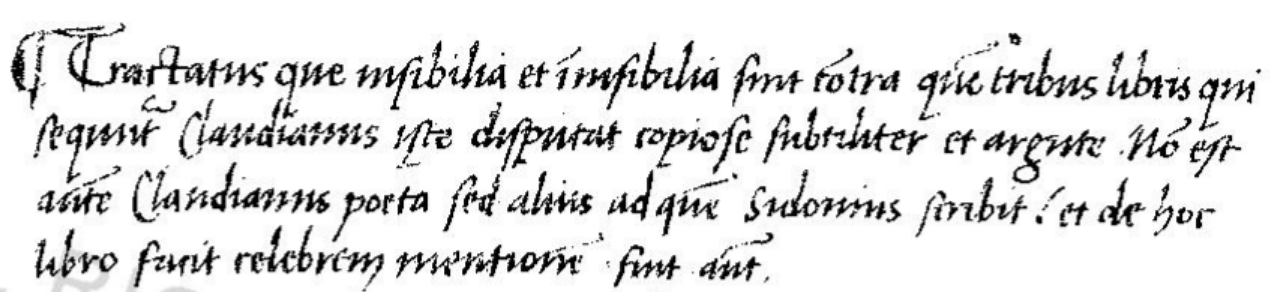 ¶ Tractatus que uisibilia et inuisibilia sint cōtra quē tribus libris qui
sequunt̄ Claudianus iste disputat copiose subtiliter et argute. Nō est
aūte Claudianus poeta sed alius ad quē Sidonius scribit: et de hoc
libro facit celebrem mentionē. sint aūt.